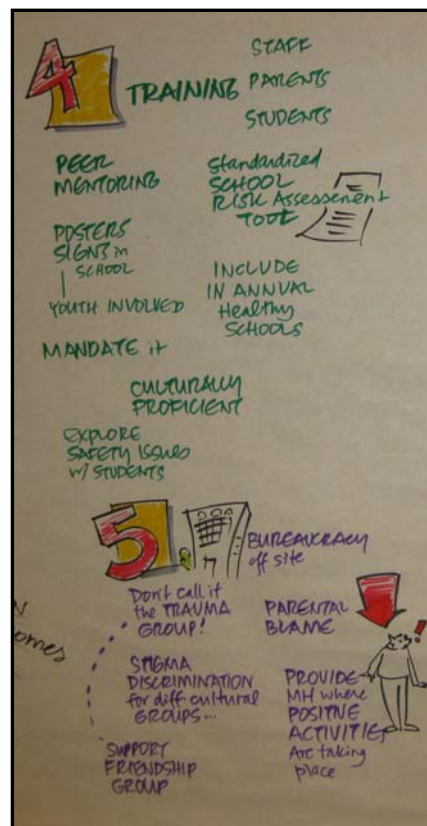 4
TRAINING
STAFF
PARENTS
STUDENTS
PEER
MENTORING
Standardized
SCHOOL
RISK Assessement
TOOL
POSTERS
SIGNS in
SCHOOL
YOUTH INVOLVED
INCLUDE
IN ANNUAL
Healthy
SCHOOLS
MANDATE it
CULTURALLY
PROFICIENT
EXPLORE
SAFETY ISSUES
w/ STUDENTS
5.
BUREAUCRACY
off site
Don't call it
the TRAUMA
GROUP!
PARENTAL
BLAME
!
STIGMA
DISCRIMINATION
for diff cultural
GROUPS...
PROVIDE
MH where
POSITIVE
ACTIVITIES
Are taking
place
SUPPORT
FRIENDSHIP
GROUP